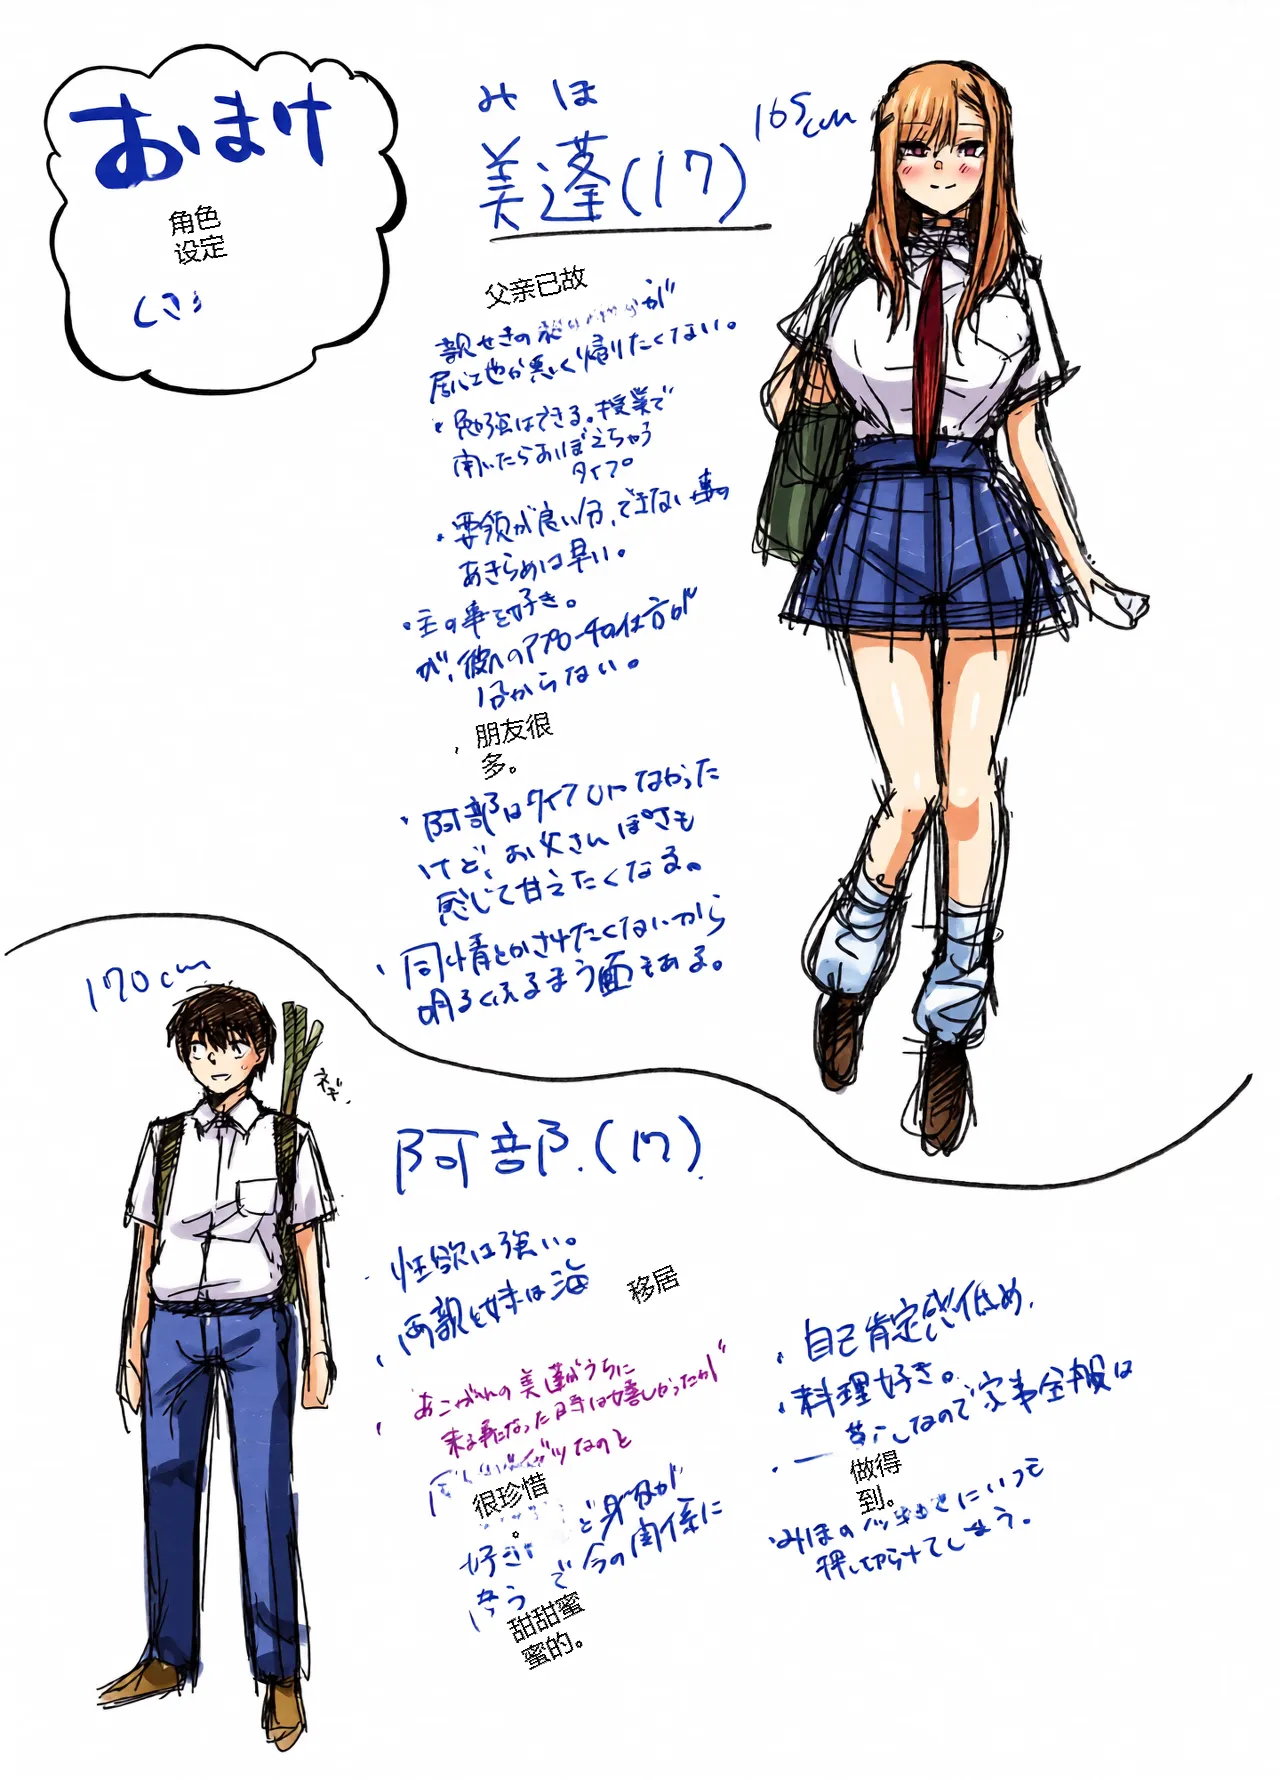 おまけ
角色
设定
みほ
美蓬(17)
165cm
父亲已故
親せきの
居心地が悪く帰りたくない。
・勉強はできる。授業で
聞いたらおぼえちゃう
タイプ。
・要領が良い分、できない事の
あきらめは早い。
・主の事を好き。
が、彼へのアプローチの仕方が
分からない。
朋友很
多。
・阿部はタイプじゃなかった
けど、お父さんぽさも
感じて甘えたくなる。
・同情とかされたくないから
明るくふるまう面もある。
170cm
ネギ。
阿部.(17).
・性欲は強い。
・両親と妹は海
移居
・あこがれの美蓬がうちに
来る事になった時は嬉しかったが
なのと
很珍惜
。
好き
ど身分が
で今の関係に
甜甜蜜
蜜的。
・自己肯定感低め.
・料理好き。
なので家事全般は
做得
到。
・みほの
にいつも
押し切られてしまう。